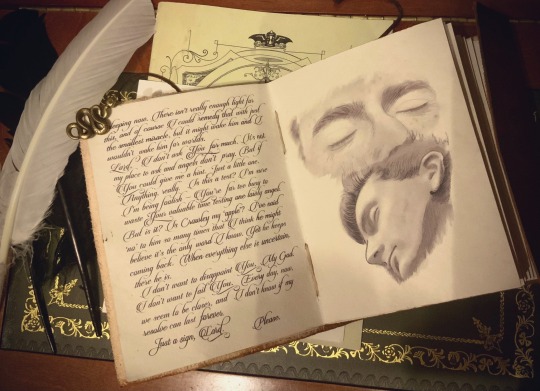 sleeping now. There isn't really enough light for
this, and of course I could remedy that with just
the smallest miracle, but it might wake him and I
wouldn't wake him for worlds.
Lord, I don't ask You for much. It's not
my place to ask and angels don't pray. But if
You could give me a hint. Just a little one.
Anything, really. Is this a test? I'm sure
I'm being foolish – You're far too busy to
waste Your valuable time testing one lonely angel.
But is it? Is Crawley my 'apple'? I've said
'no' to him so many times that I think he might
believe it's the only word I know. Yet he keeps
coming back. When everything else is uncertain,
there he is.
I don't want to disappoint You, My God.
I don't want to fail You. Every day, now,
we seem to be closer, and I don't know if my
resolve can last forever.
Just a sign, Lord. Please.